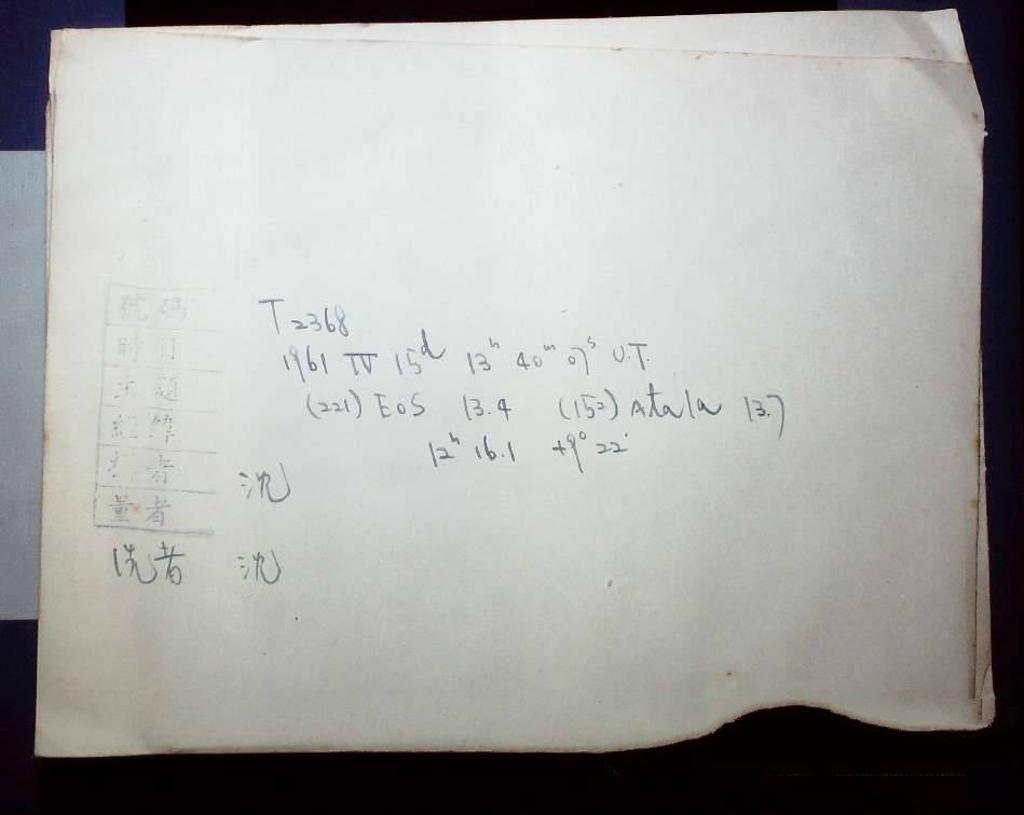 號碼
T2368
時日
1961 IV 15ᵈ 13ʰ 40ᵐ 07ˢ U.T.
主題
(221) EoS 13.4 (152) Atala 13.7
經緯
12ʰ 16.1 +9° 22'
者 沈
量者
洗者 沈